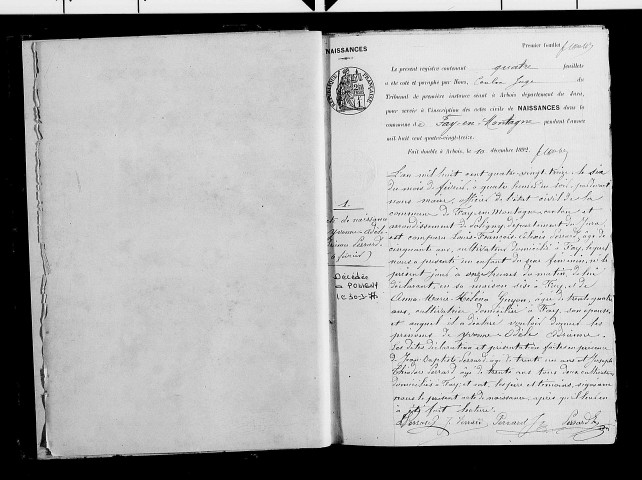 NAISSANCES
Premier feuillet
Le présent registre contenant quatre feuillets
a été coté et paraphé par Nous, Juge du
Tribunal de première instance séant à Arbois département du Jura,
pour servir à l'inscription des actes civils de NAISSANCES dans la
commune de Fay-en-Montagne pendant l'année
mil huit cent quatre-vingt-treize.
Fait double à Arbois, le 10 décembre 1892.
1
Acte de naissance
Yvonne Adèle
Perrard
février
Décédée
à POLIGNY
le 30-3-76
L'an mil huit cent quatre-vingt treize, le six
du mois de février, à quatre heures du soir, pardevant
nous maire, officier de l'état civil de la
commune de Fay-en-Montagne, canton et
arrondissement de Poligny, département du Jura,
est comparu Louis-François Perrard, âgé de
cinquante ans, cultivateur, domicilié à Fay, lequel
nous a présenté un enfant du sexe féminin, né le
présent jour à onze heures du matin, de lui
déclarant, en sa maison sise à Fay, et de
Anna Marie Guyon, âgée de trente quatre
ans, cultivatrice domiciliée à Fay, son épouse,
et auquel il a déclaré vouloir donner les
prénoms de Yvonne Adèle
Les dites déclaration et présentation faites en présence
de Jean-Baptiste Perrard âgé de trente un ans et Joseph
Perrard âgé de trente ans tous deux cultivateurs
domiciliés à Fay et ont, les père et témoins, signé avec
nous le présent acte de naissance, après qu'il leur en
a été fait lecture.
Perrard Perrard Perrard